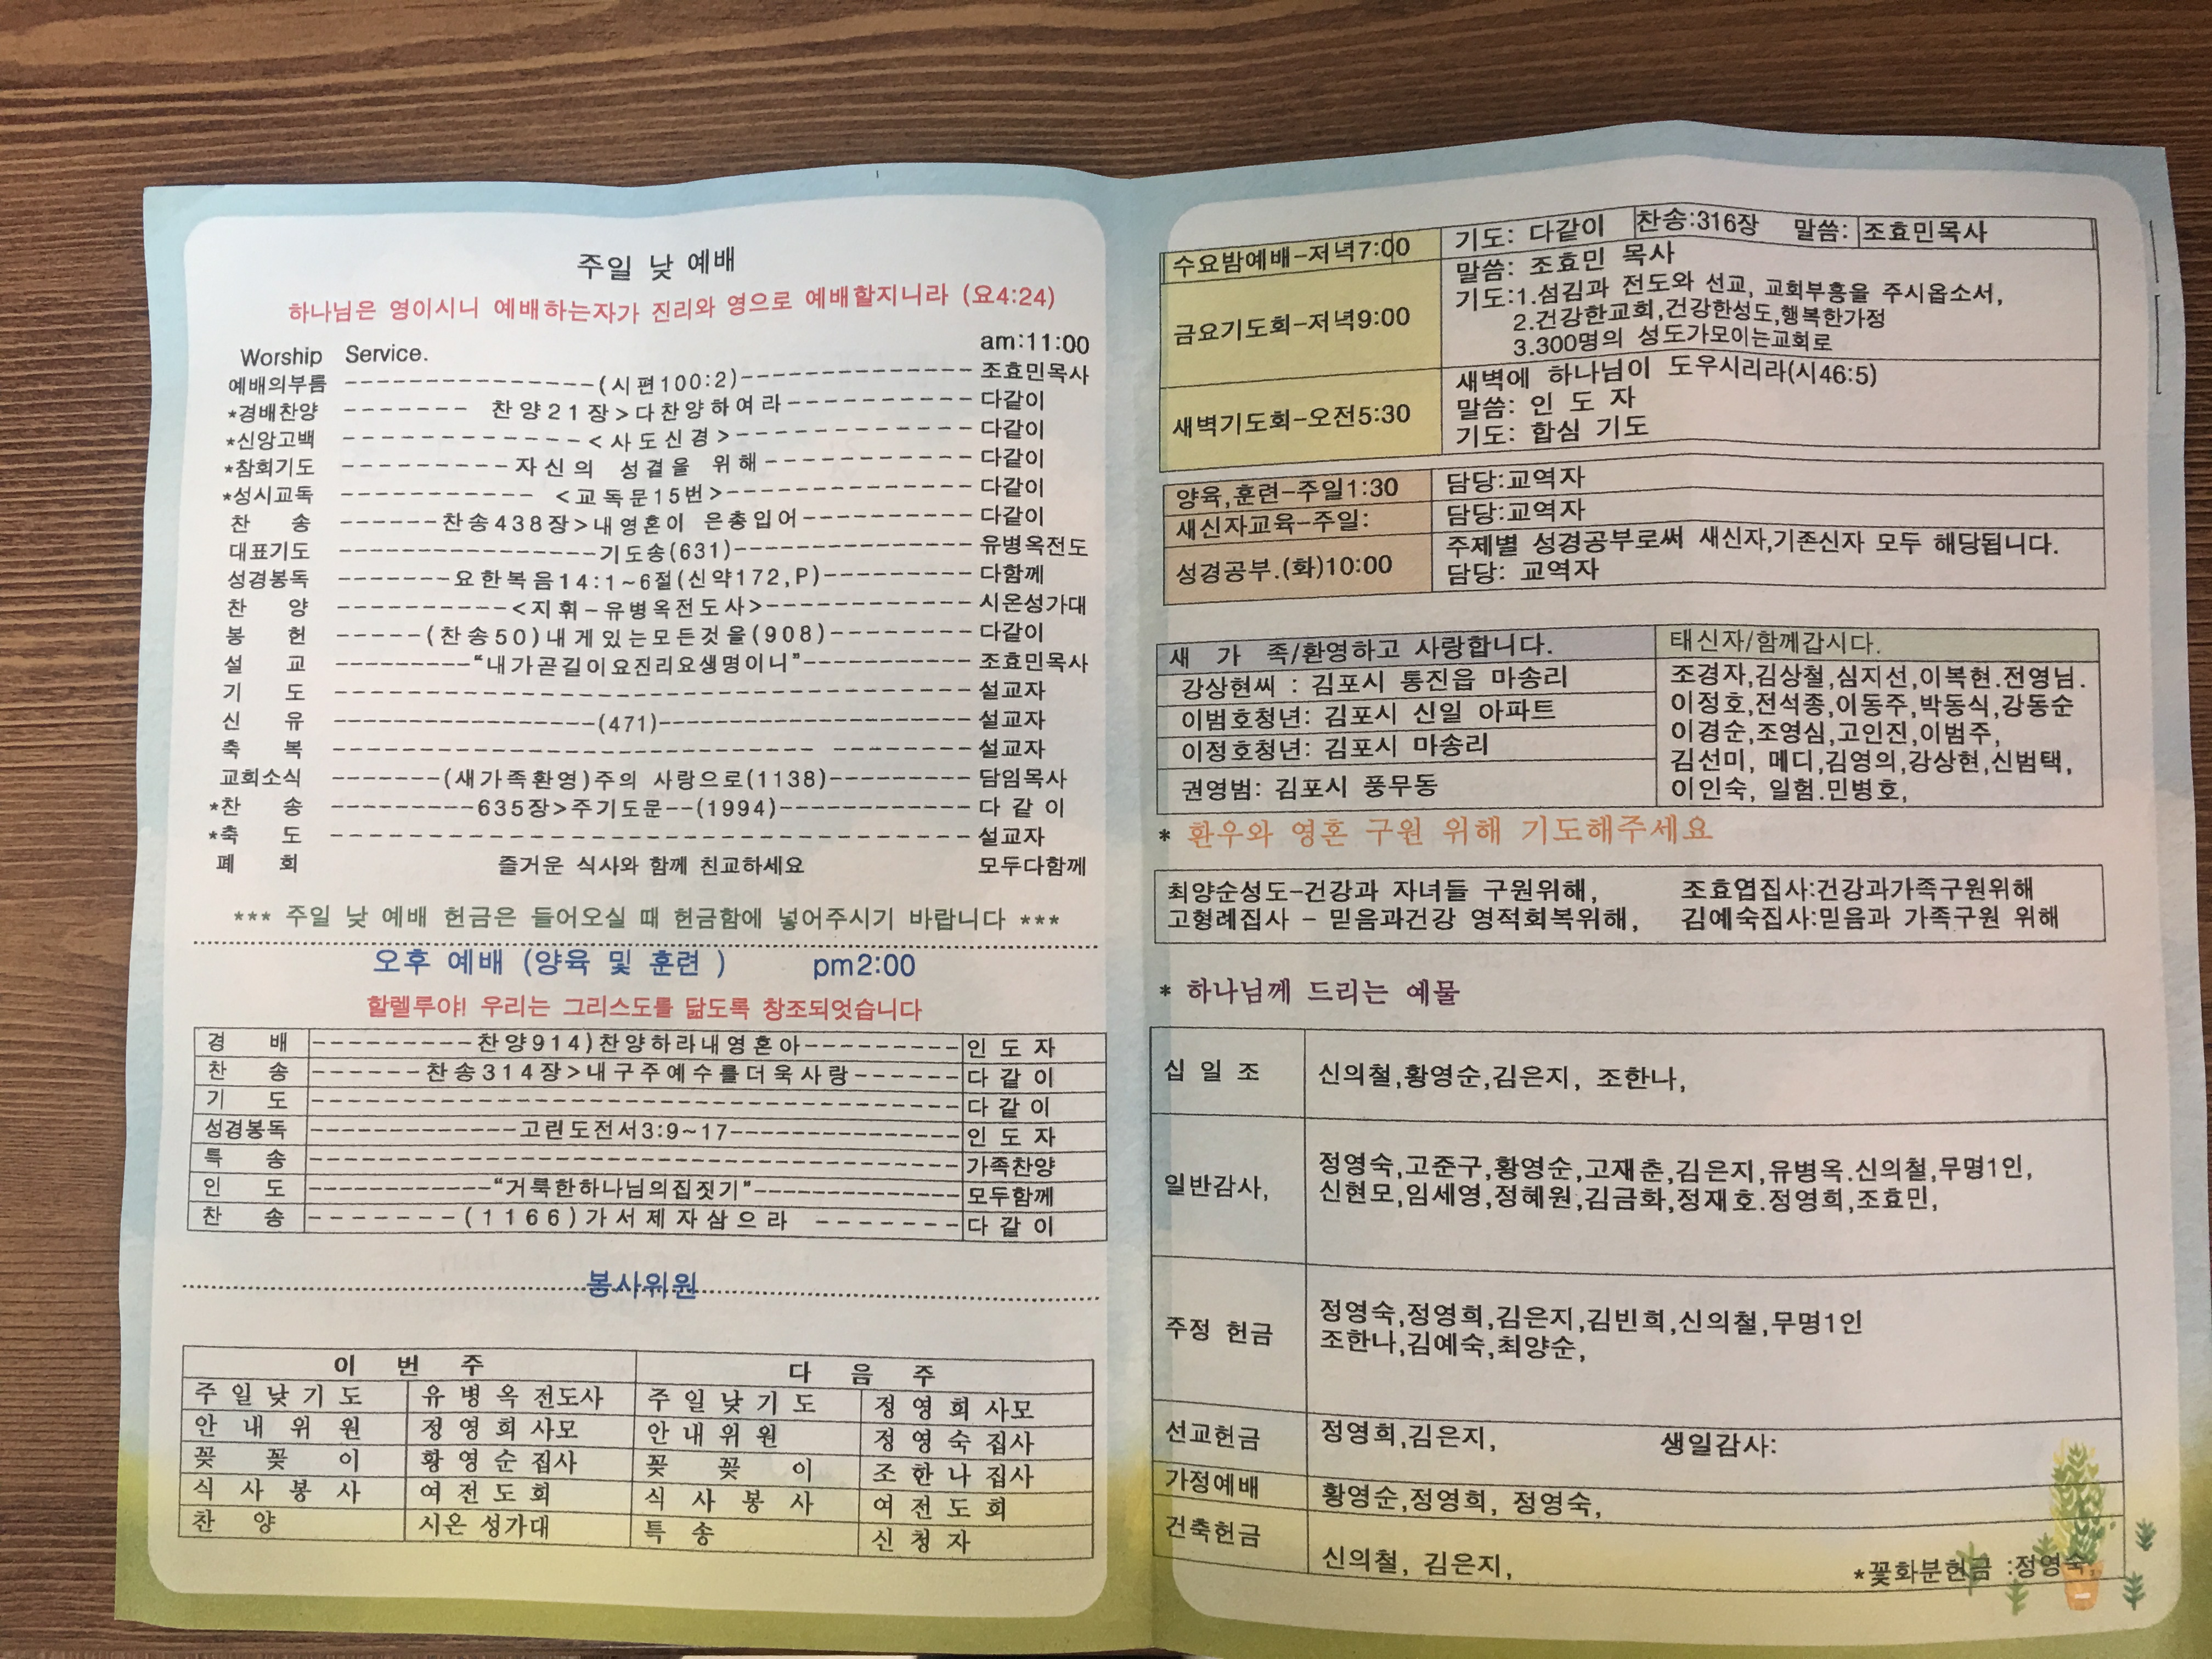 주일 낮 예배
하나님은 영이시니 예배하는자가 진리와 영으로 예배할지니라 (요4:24)
Worship Service. am:11:00
예배의부름 ---------------(시편100:2)-------------- 조효민목사
*경배찬양 ------- 찬양21장>다찬양하여라---------- 다같이
*신앙고백 ------------<사도신경>-------------- 다같이
*참회기도 ---------자신의 성결을 위해----------- 다같이
*성시교독 ----------- <교독문15번>-------------- 다같이
찬 송 ------찬송438장>내영혼이 은총입어---------- 다같이
대표기도 ----------------기도송(631)-------------- 유병옥전도
성경봉독 -------요한복음14:1~6절(신약172,P)--------- 다함께
찬 양 ----------<지휘-유병옥전도사>------------ 시온성가대
봉 헌 -----(찬송50)내게있는모든것을(908)-------- 다같이
설 교 ---------“내가곧길이요진리요생명이니”----------- 조효민목사
기 도 -------------------------------------- 설교자
신 유 ----------------(471)------------------- 설교자
축 복 ---------------------------- -------- 설교자
교회소식 -------(새가족환영)주의 사랑으로(1138)--------- 담임목사
*찬 송 ---------635장>주기도문--(1994)------------ 다 같 이
*축 도 -------------------------------------- 설교자
폐 회 즐거운 식사와 함께 친교하세요 모두다함께
*** 주일 낮 예배 헌금은 들어오실 때 헌금함에 넣어주시기 바랍니다 ***
오후 예배 (양육 및 훈련 ) pm2:00
할렐루야! 우리는 그리스도를 닮도록 창조되엇습니다
경 배 ----------찬양914)찬양하라내영혼아--------- 인 도 자
찬 송 ------찬송314장>내구주예수를더욱사랑------ 다 같 이
기 도 -------------------------------------- 다 같 이
성경봉독 ------------고린도전서3:9~17-------------- 인 도 자
특 송 -------------------------------------- 가족찬양
인 도 -----------“거룩한하나님의집짓기”------------- 모두함께
찬 송 -------(1166)가서제자삼으라 ------- 다 같 이
봉사위원
이 번 주 다 음 주
주 일 낮 기 도 유 병 옥 전도사 주 일 낮 기 도 정 영 희 사모
안 내 위 원 정 영 희 사모 안 내 위 원 정 영 숙 집사
꽃 꽂 이 황 영 순 집사 꽃 꽂 이 조 한 나 집사
식 사 봉 사 여 전 도 회 식 사 봉 사 여 전 도 회
찬 양 시온 성가대 특 송 신 청 자
수요밤예배-저녁7:00 기도: 다같이 찬송:316장 말씀: 조효민목사
금요기도회-저녁9:00 말씀: 조효민 목사
기도:1.섬김과 전도와 선교, 교회부흥을 주시옵소서,
2.건강한교회,건강한성도,행복한가정
3.300명의 성도가모이는교회로
새벽기도회-오전5:30 새벽에 하나님이 도우시리라(시46:5)
말씀: 인 도 자
기도: 합심 기도
양육,훈련-주일1:30 담당:교역자
새신자교육-주일: 담당:교역자
성경공부.(화)10:00 주제별 성경공부로써 새신자,기존신자 모두 해당됩니다.
담당: 교역자
새 가 족/환영하고 사랑합니다. 태신자/함께갑시다.
강상현씨 : 김포시 통진읍 마송리 조경자,김상철,심지선,이복현.전영님.
이범호청년: 김포시 신일 아파트 이정호,전석종,이동주,박동식,강동순
이정호청년: 김포시 마송리 이경순,조영심,고인진,이범주,
권영범: 김포시 풍무동 김선미, 메디,김영의,강상현,신범택,
이인숙, 일험.민병호,
* 환우와 영혼 구원 위해 기도해주세요
최양순성도-건강과 자녀들 구원위해, 조효엽집사:건강과가족구원위해
고형례집사 - 믿음과건강 영적회복위해, 김예숙집사:믿음과 가족구원 위해
* 하나님께 드리는 예물
십 일 조 신의철,황영순,김은지, 조한나,
일반감사, 정영숙,고준구,황영순,고재춘,김은지,유병옥.신의철,무명1인,
신현모,임세영,정혜원,김금화,정재호.정영희,조효민,
주정 헌금 정영숙,정영희,김은지,김빈희,신의철,무명1인
조한나,김예숙,최양순,
선교헌금 정영희,김은지, 생일감사:
가정예배 황영순,정영희, 정영숙,
건축헌금 신의철, 김은지, *꽃화분헌금 :정영숙,